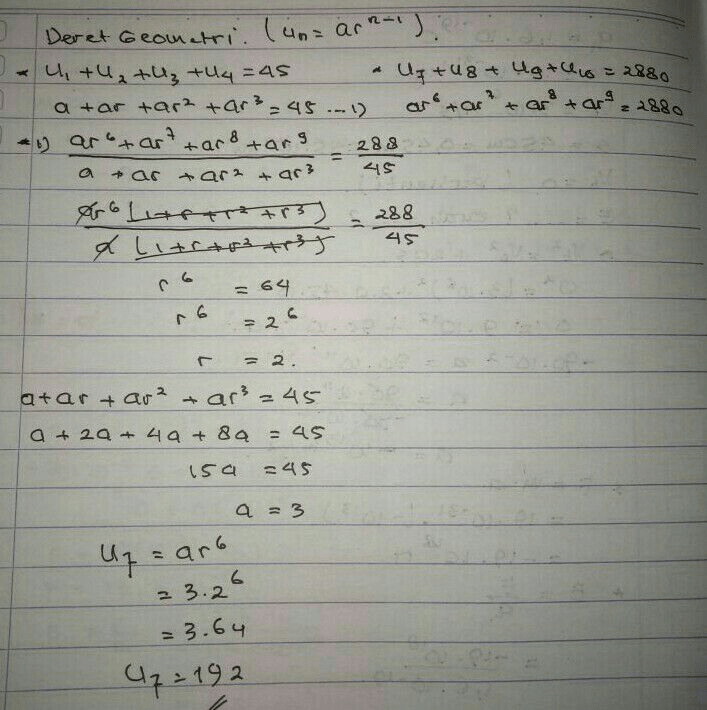 Deret Geometri. (Un = ar^n-1).
* U1 + U2 + U3 + U4 = 45
* U7 + U8 + U9 + U10 = 2880
a + ar + ar² + ar³ = 45 ... 1)
ar⁶ + ar⁷ + ar⁸ + ar⁹ = 2880
* 1) ar⁶ + ar⁷ + ar⁸ + ar⁹ / a + ar + ar² + ar³ = 288 / 45
ar⁶ (1 + r + r² + r³) / a (1 + r + r² + r³) = 288 / 45
r⁶ = 64
r⁶ = 2⁶
r = 2.
a + ar + ar² + ar³ = 45
a + 2a + 4a + 8a = 45
15a = 45
a = 3
U7 = ar⁶
= 3.2⁶
= 3.64
U7 = 192